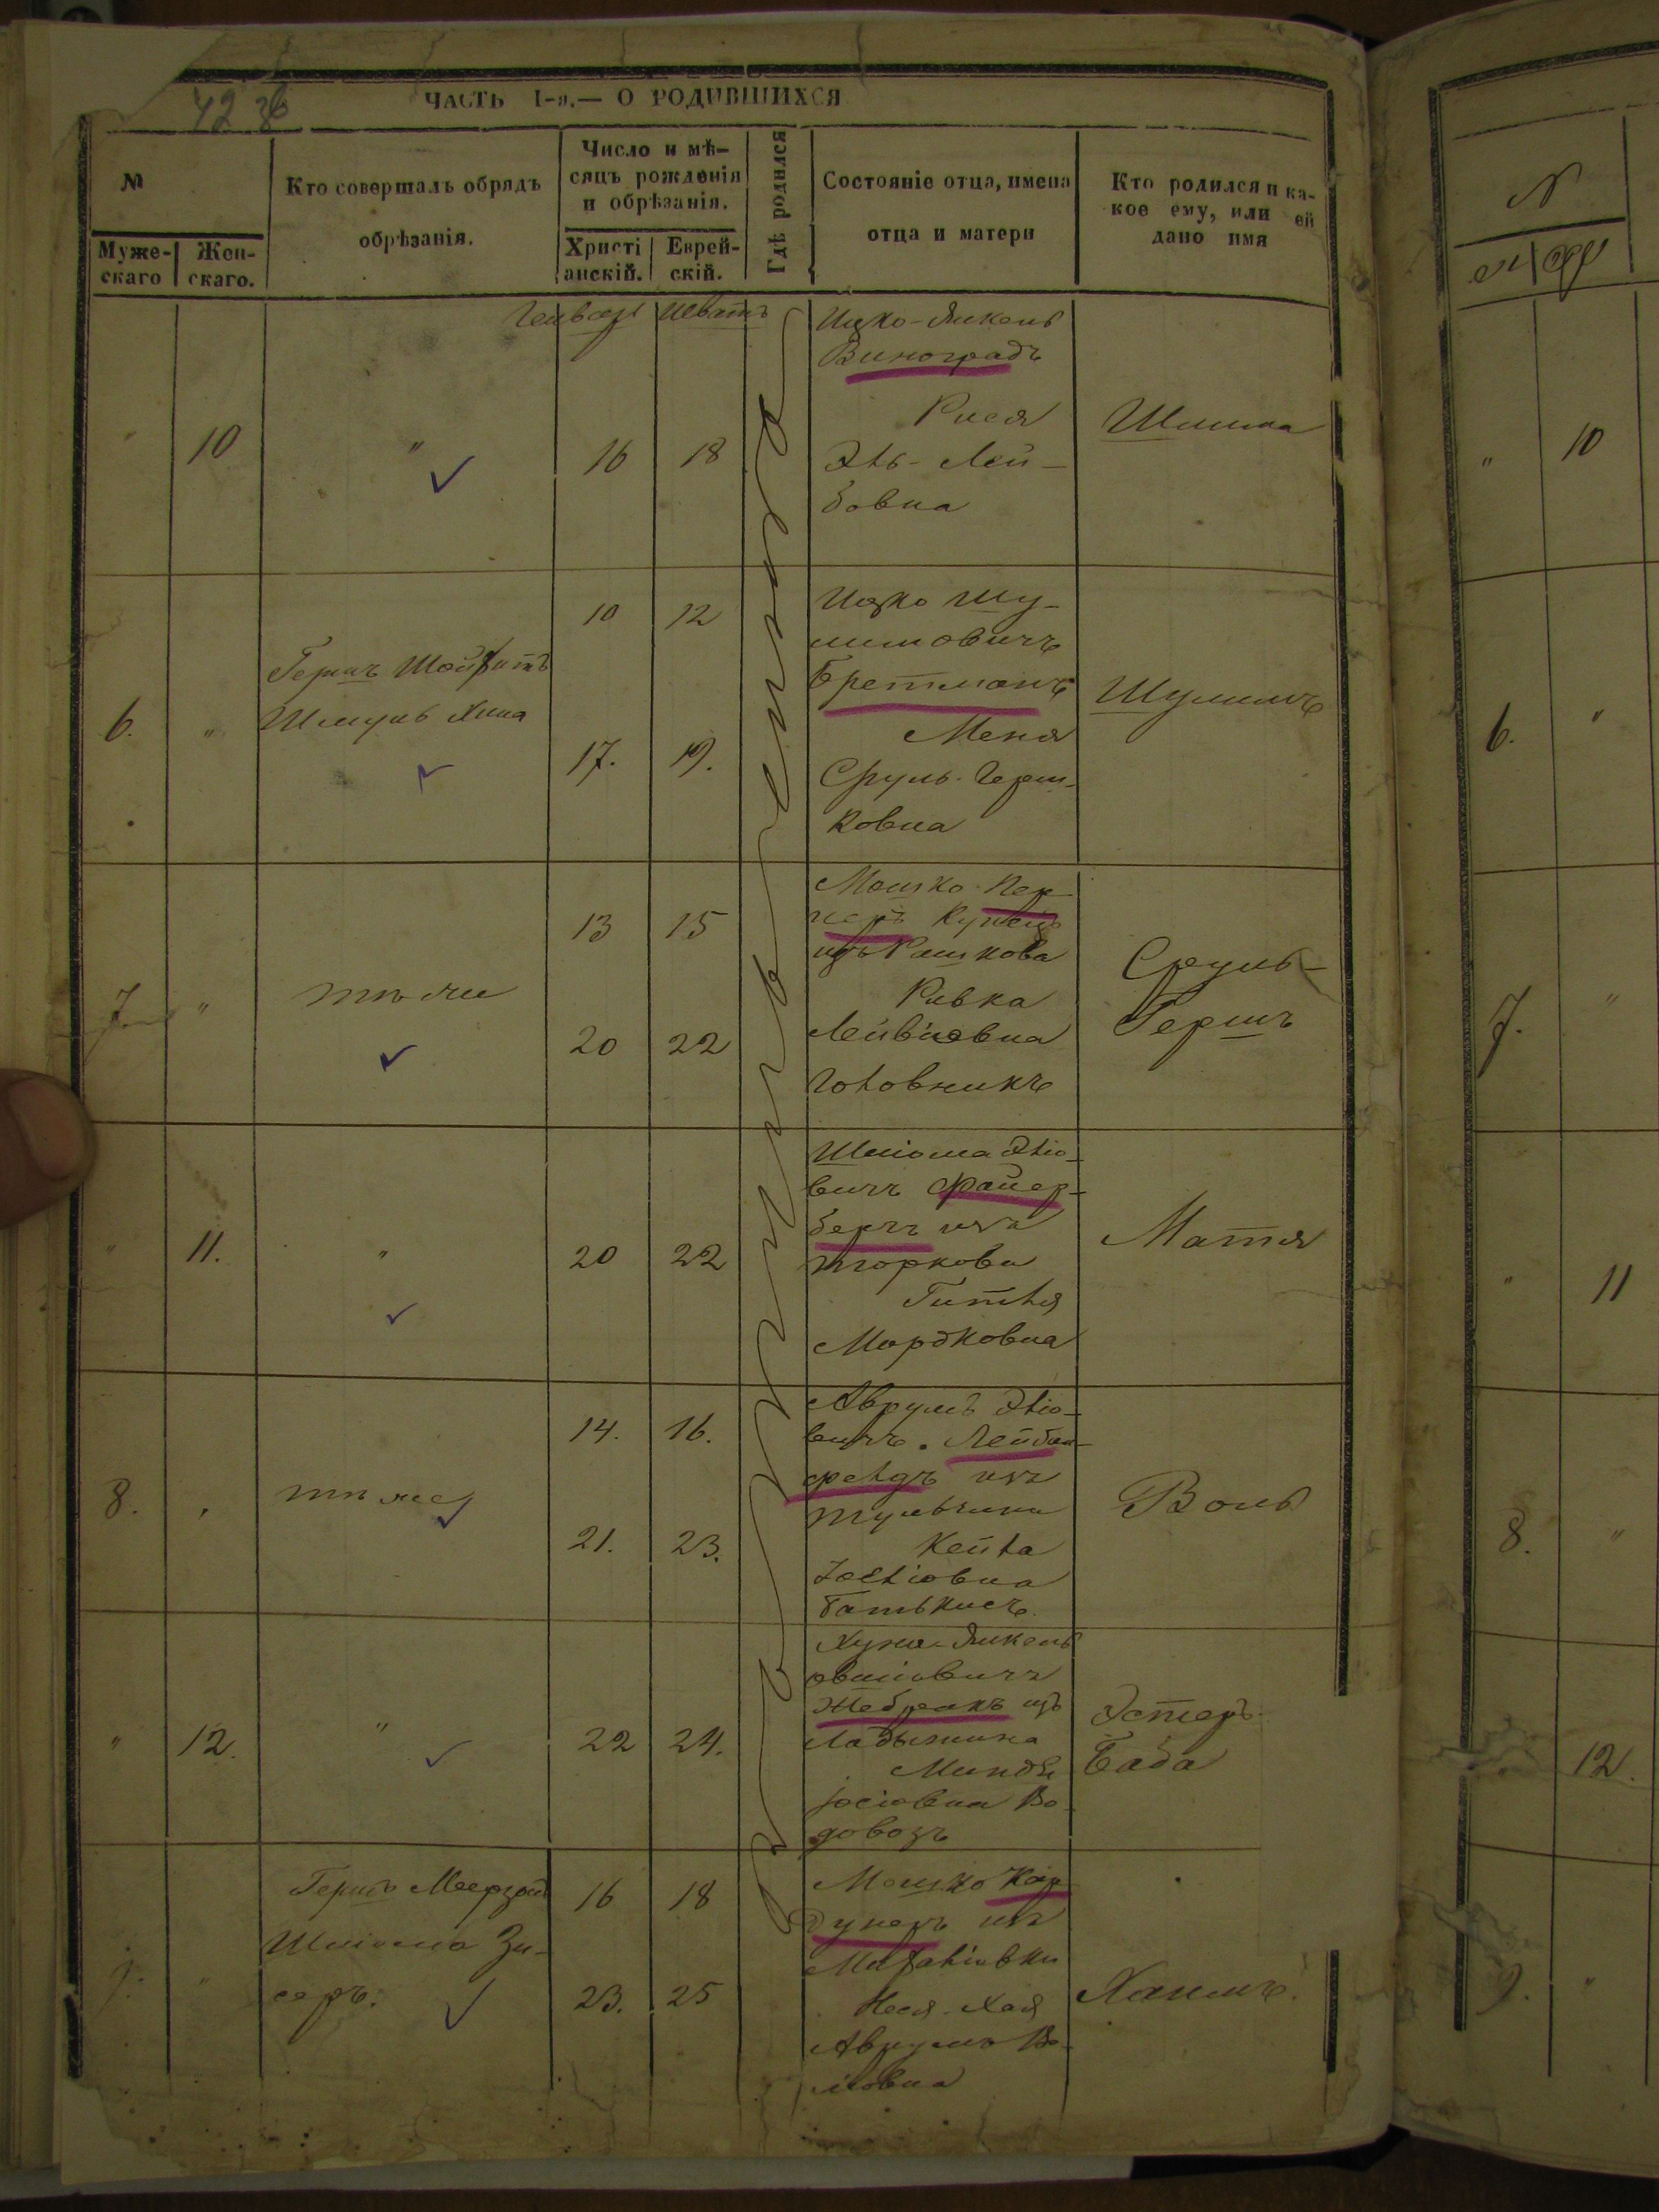 42
ЧАСТЬ I-я.— О РОДИВШИХСЯ
№
Муже-
скаго
Жен-
скаго.
Кто совершалъ обрядъ
обрѣзанія.
Число и мѣ-
сяцъ рожденія
и обрѣзанія.
Христі
анскій.
Еврей-
скій.
Гдѣ родился
Состояніе отца, имена
отца и матери
Кто родился и ка-
кое ему, или ей
дано имя
Генваря
Шватъ
" 10 "
16 18
Ицко-Янкель
Виноградъ
Рися
Эль-Лей-
бовна
6. "
Гершъ Шойхитъ
Шмуль Хина
10 12
17. 19.
Ицко Шу-
лимовичъ
Бретманъ
Меня
Сруль-Герш-
ковна
Шулимъ
7 "
тѣ же
13 15
20 22
Мошко
Купецъ
изъ Рашкова
Ривка
Лейбіовна
Головникъ
Сруль-
Гершъ
" 11. "
20 22
Шліома Эліо-
вичъ Файер-
бергъ изъ
Гитля
Мордковна
Матля
8. "
тѣ же
14. 16.
21. 23.
Аврумъ Эліо-
вичъ. Лейбен-
фельдъ изъ
Тульчина
Кейла
Іосіовна
Батькисъ
Воль
" 12. "
22 24.
Янкель
Жебракъ изъ
Ладыжина
Миндя
Іосіовна Во-
довозъ
Эстеръ-
Баба
9. "
Гершъ
Шліома Зи-
серъ.
16 18
23. 25
Мошко Кор-
дунеръ изъ
Михаліовки
Неся-Хая
Аврумъ Во-
ліовна
Хаимъ.
№
" 10
6. "
7. "
" 11
8. "
" 12.
9. "